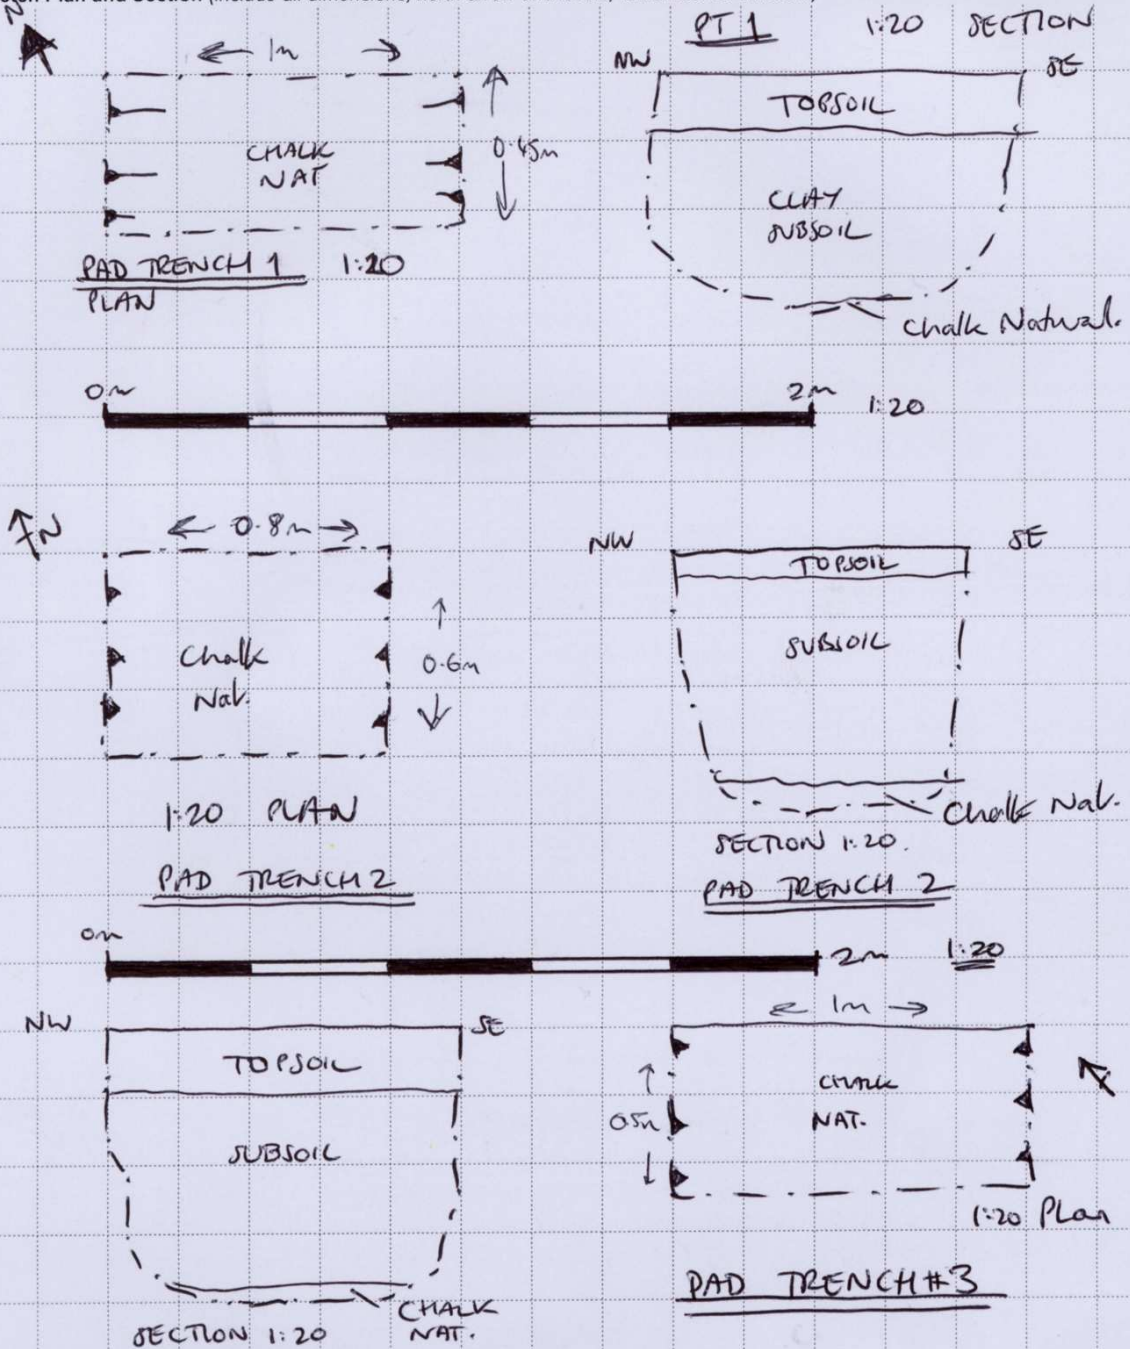 N
1m
0.45m
CHALK
NAT
PAD TRENCH 1 1:20
PLAN
PT 1 1:20 SECTION
NW
SE
TOPSOIL
CLAY
SUBSOIL
Chalk Natural.
0m
2m
1:20
N
0.8m
0.6m
Chalk
Nat.
1:20 PLAN
PAD TRENCH 2
NW
SE
TOPSOIL
SUBSOIL
Chalk Nat.
SECTION 1:20.
PAD TRENCH 2
0m
2m
1:20
NW
SE
TOPSOIL
SUBSOIL
CHALK
NAT.
SECTION 1:20
1m
0.5m
CHALK
NAT.
1:20 Plan
PAD TRENCH #3